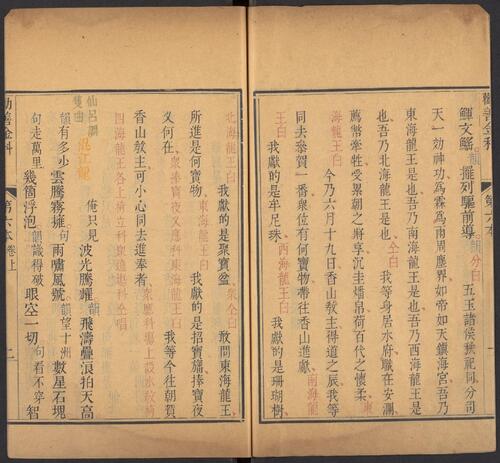 勸善金科
第六本
鱓文鰩
韻
擺列驅前導
韻
分白
五玉諸侯扶祀同分司
天一効神功為霖為雨周應界如帝如天鎮海宮吾乃
東海龍王是也吾乃南海龍王是也吾乃西海龍王是
也吾乃北海龍王是也
仝白
我等身居水府職在安瀾
薦幣牽牲受累朝之廝享沉圭燔帛荷百代之懷柔
東
海龍王白
今乃六月十九日香山敎主得道之辰我等
同去叅賀一番衆位有何寶物帶往香山進獻
南海龍
王白
我獻的是牟尼珠
西海龍王白
我獻的是珊瑚樹
北海龍王白
我獻的是聚寶盆
衆仝白
敢問東海龍王
所進是何寶物
東海龍王白
我獻的是招寶旛捧寶夜
叉何在
我等今往朝賀
香山敎主可小心同去進奉者
四海龍王各上
仙呂調
隻曲
混江龍
俺只見
波光騰耀
韻
飛濤疊浪拍天高
韻
有多少
雲騰霧擁
句
雨嘯風號
韻
望十洲
數星石塊
句
走萬里
幾箇浮泡
韻
識得破
眼空一切
句
看不穿智
勸善金科
第六本卷上
二